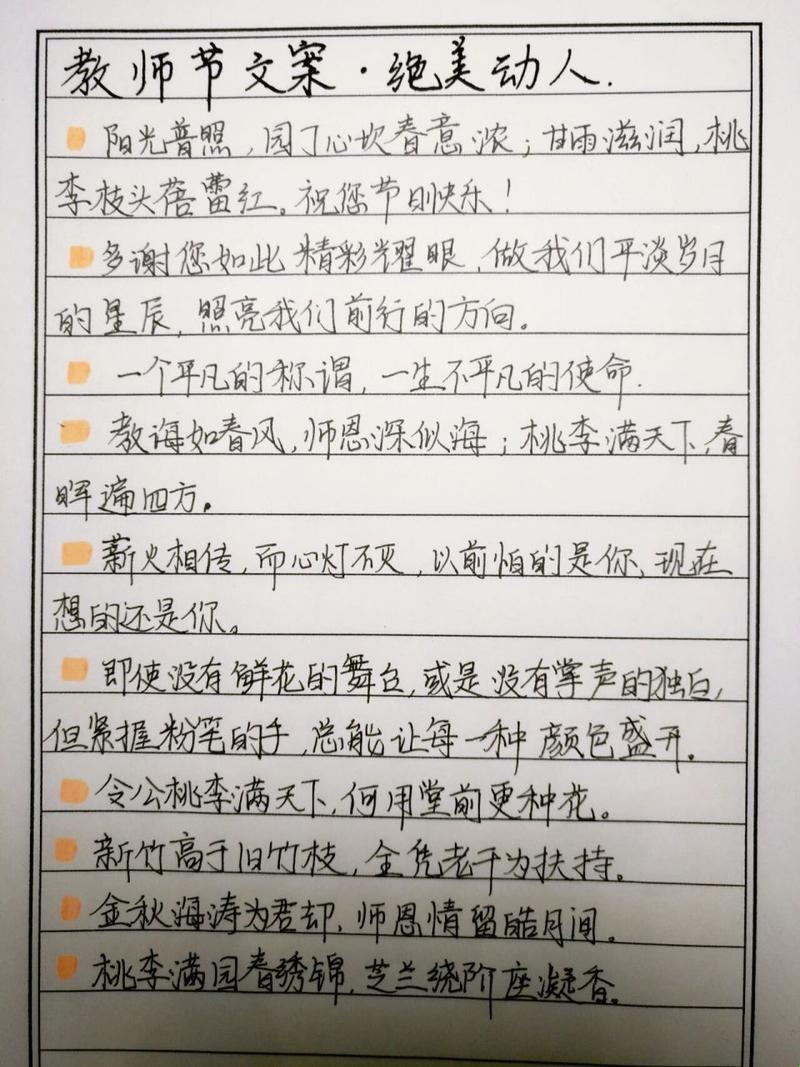 教师节文案·绝美动人.
阳光普照,园丁心坎春意浓;甘雨滋润,桃
李枝头蓓蕾红。祝您节日快乐!
多谢您如此精彩耀眼,做我们平淡岁月
的星辰,照亮我们前行的方向。
一个平凡的称谓,一生不平凡的使命.
教诲如春风,师恩深似海;桃李满天下,春
晖遍四方.
薪火相传,而心灯不灭,以前怕的是你,现在
想的还是你。
即使没有鲜花的舞台,或是没有掌声的独白,
但紧握粉笔的手,总能让每一种颜色盛开.
令公桃李满天下,何用堂前更种花。
新竹高于旧竹枝,全凭老干为扶持。
金秋海涛为君却,师恩情留皓月间。
桃李满园春绣锦,芝兰绕阶座凝香。